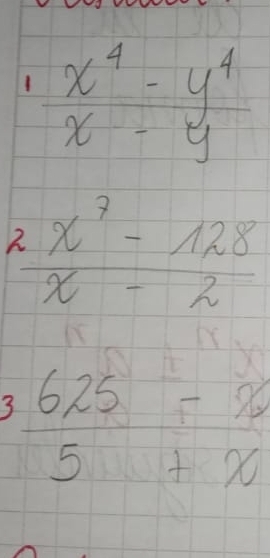 1 x⁴ - y⁴
x - y
2 x⁷ - 128
x - 2
3 625 - x
5 + x